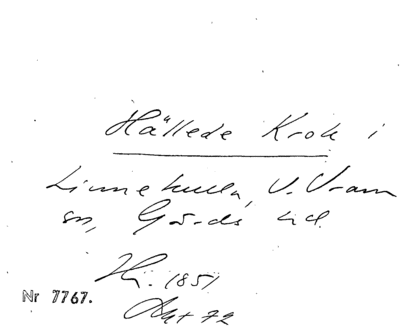 Hällede Krok i
Linnekulla, V. Vram
sn, Gärds hd.
1851
Nr 7767.
Akt 72